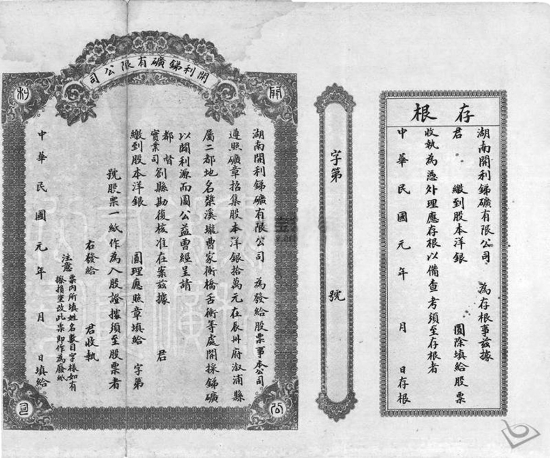 存根
湖南開利銻礦有限公司 為存根事茲據
君 繳到股本洋銀 圓除填給股票
收執為憑外理應存根以備查考須至存根者
中華民國元年 月 日存根
字第 號
開利銻礦有限公司
開
利
公
司
湖南開利銻礦有限公司 為發給股票事本公司
遵照礦章招集股本洋銀拾萬元在辰州府漵浦縣
屬二都地名 溪壠曹家衝橋舌衝等處開採銻礦
以闢利源而圖公益曾經呈請
都督
實業司 劄縣勘復核准在案茲據 君
繳到股本洋銀 圓理應照章填給 字第
號股票一紙作為入股證據須至股票者
右發給 君收執
注意 票內所填姓名數目字樣如有
挖損塗改此票即作為廢紙
中華民國元年 月 日填給